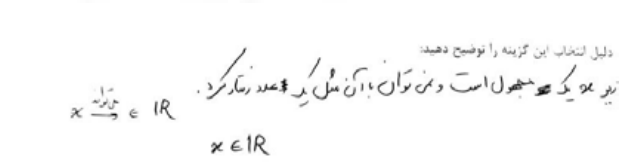 دلیل انتخاب این گزینه را توضیح دهید:
زیرا x یک مجهول است و نمی توان با آن مثل یک عدد رفتار کرد.
x می‌تواند → ∈ IR
x ∈ IR